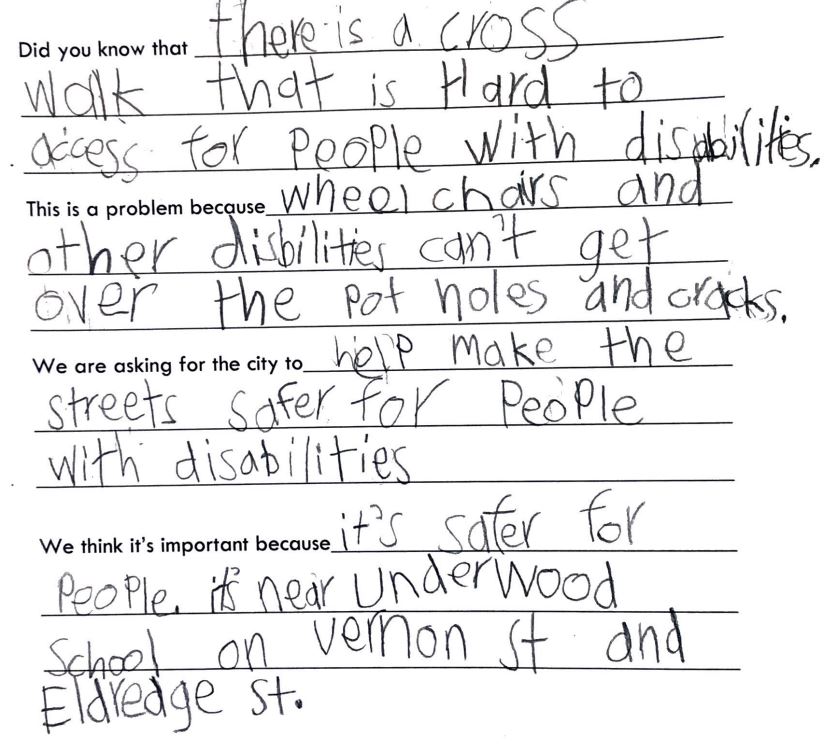 Did you know that there is a cross
walk that is Hard to
access for people with disabilities.
This is a problem because wheel chairs and
other disbilities can't get
over the pot holes and cracks.
We are asking for the city to help make the
streets safer for People
with disabilities
We think it's important because it's safer for
People. it's near Underwood
School on Vernon st and
Eldredge st.